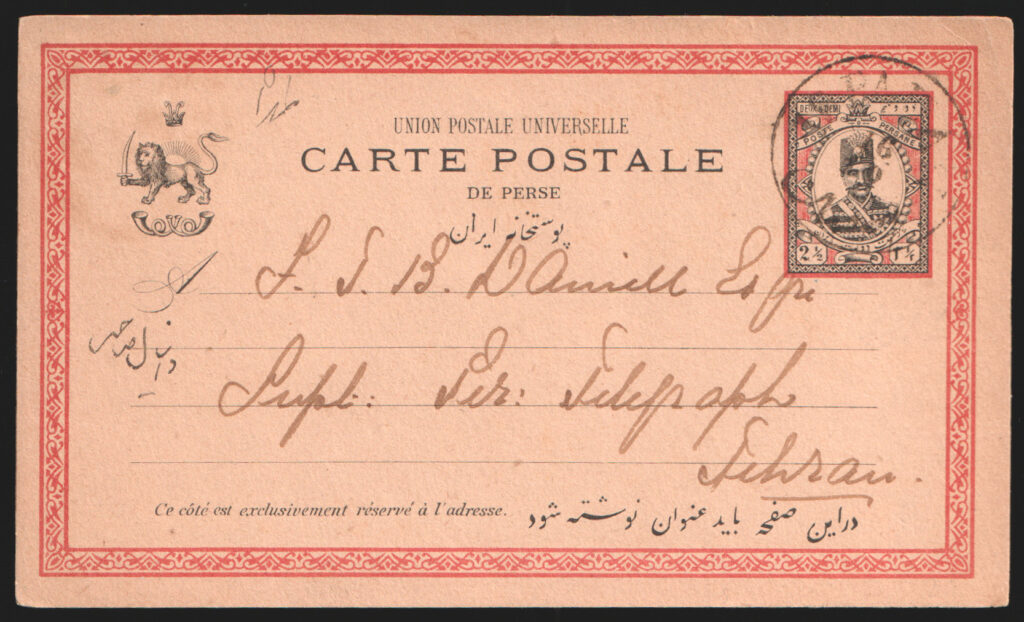 UNION POSTALE UNIVERSELLE
CARTE POSTALE
DE PERSE
پوستخانه ایران
POSTE PERSANE
2½ ۲½
S. J. B. Daniell Esqre
Supt: Per: Telegraph
Tehran.
Ce côté est exclusivement réservé à l'adresse.
دراین صفحه باید عنوان نوشته شود